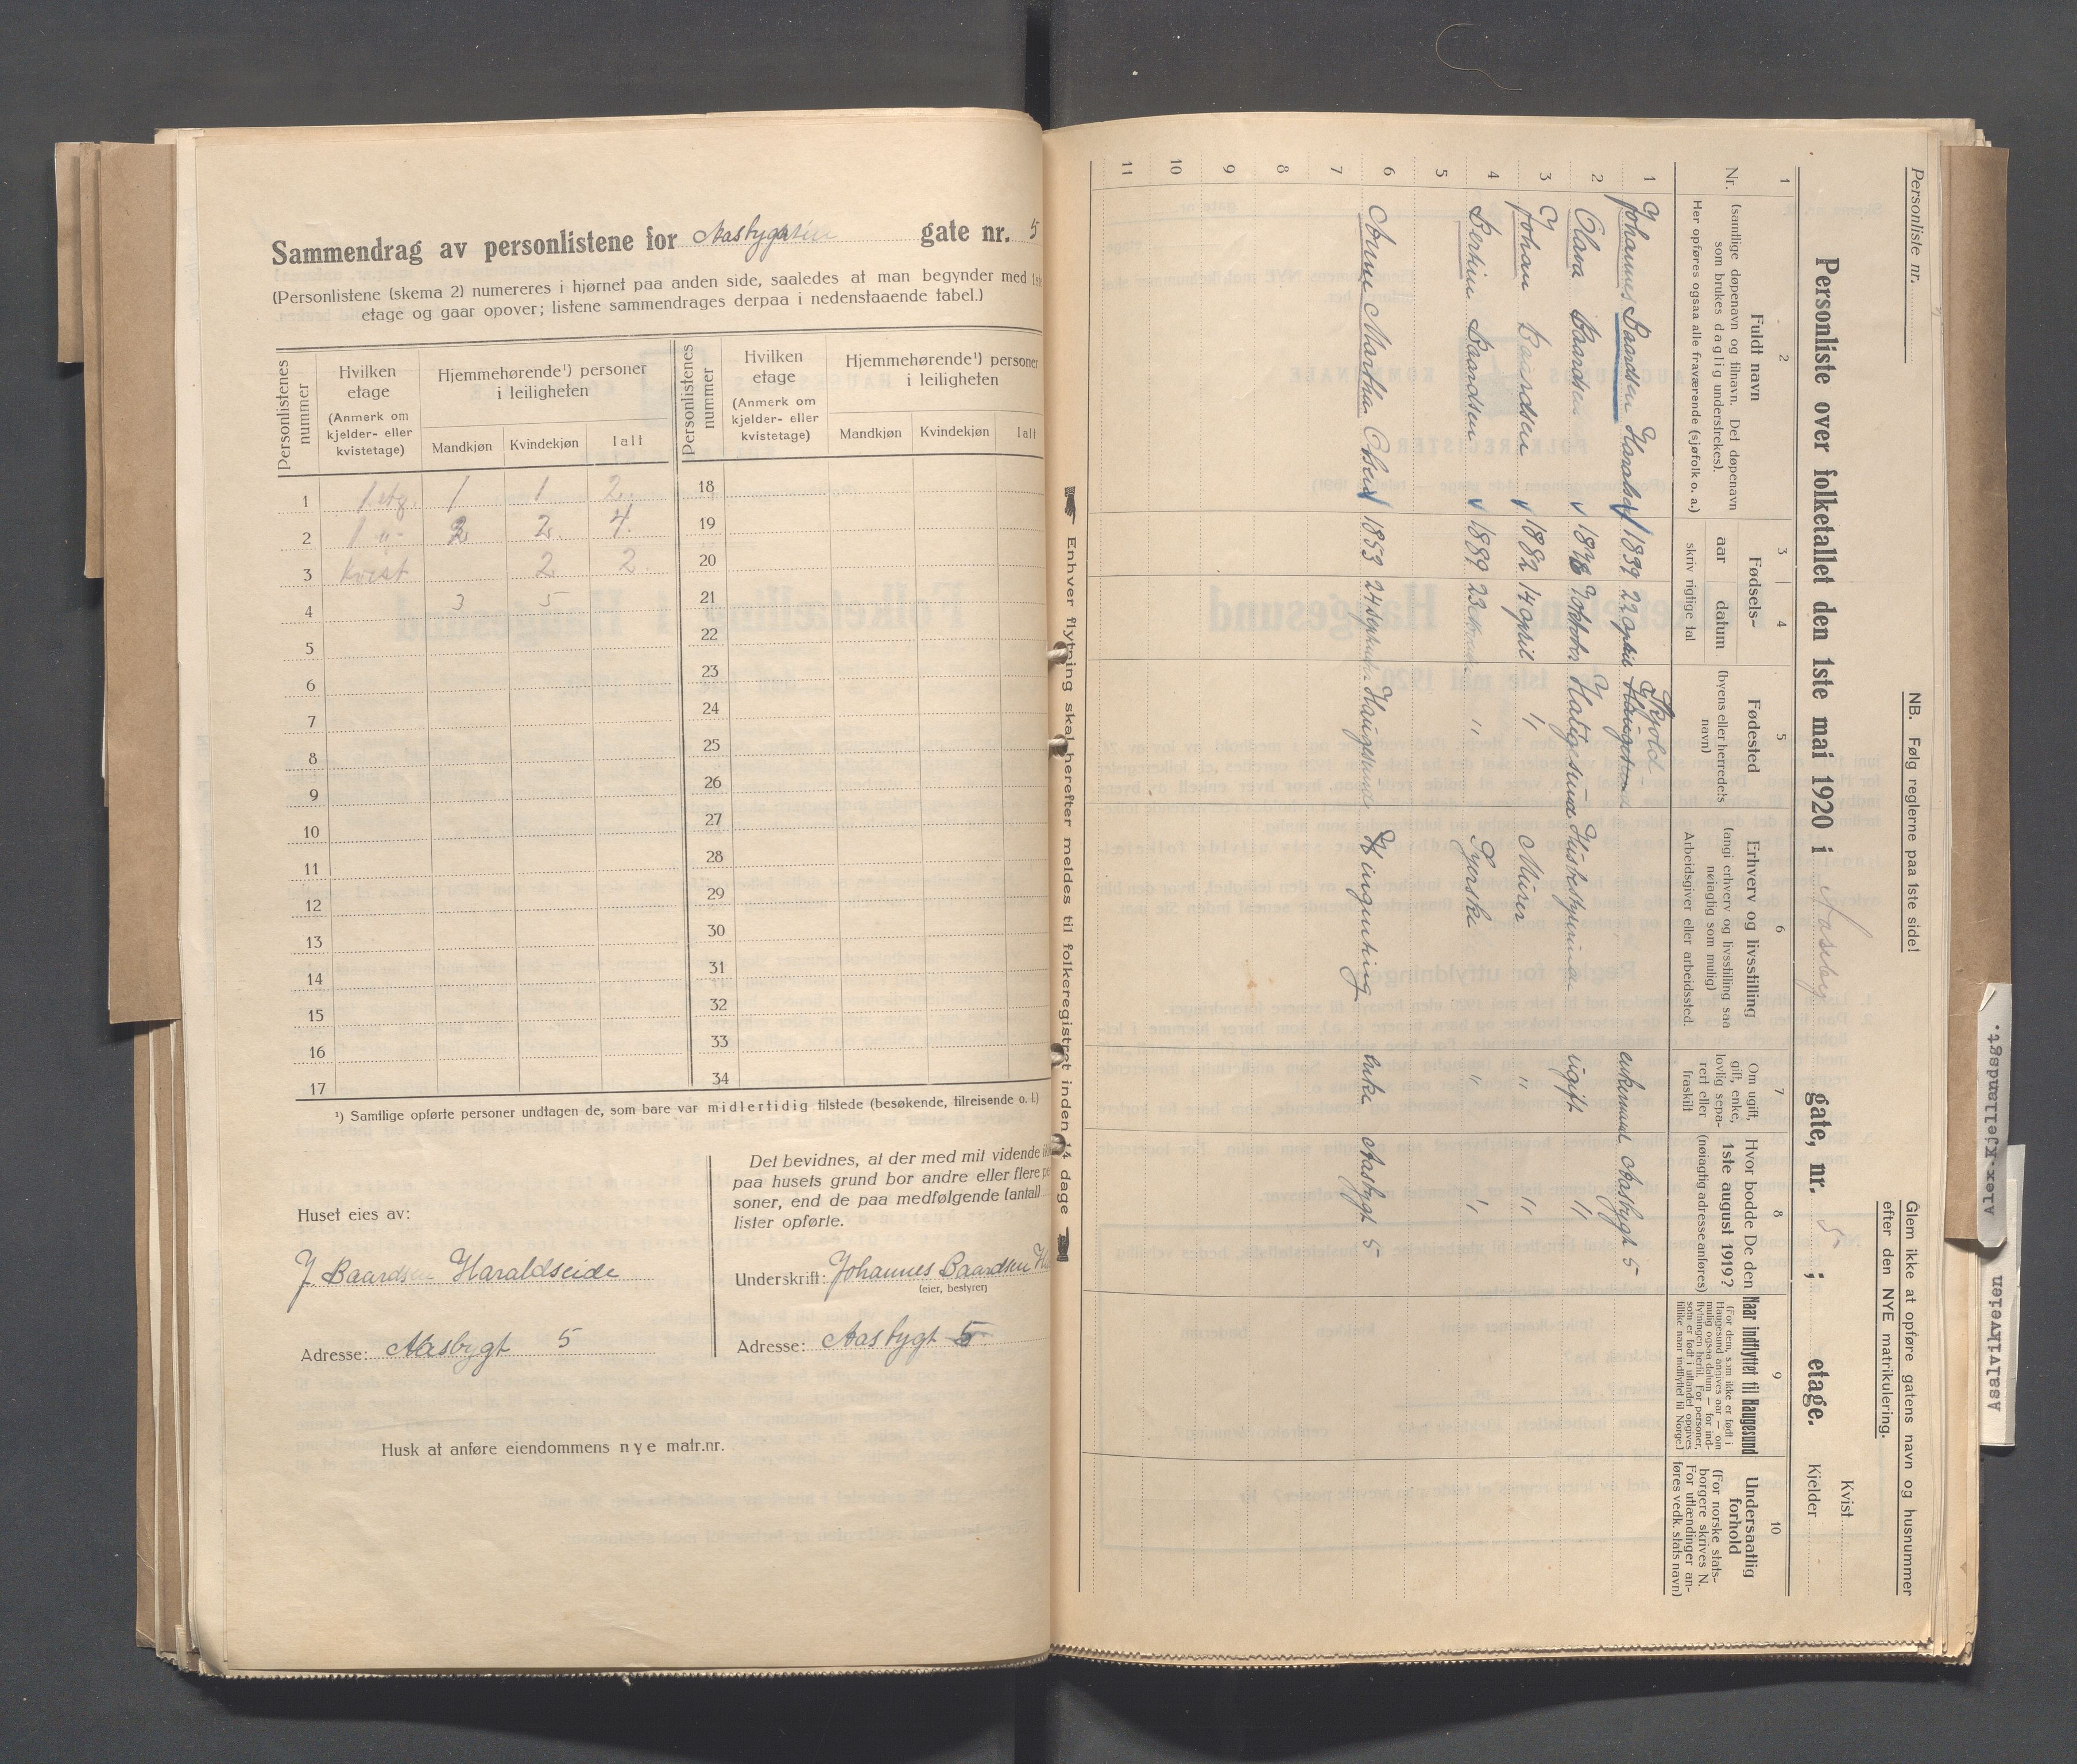 Sammendrag av personlistene for Aasbygaten gate nr. 5
(Personlistene (skema 2) numereres i hjørnet paa anden side, saaledes at man begynder med 1ste
etage og gaar opover; listene sammendrages derpaa i nedenstaaende tabel.)
Personlistenes nummer
Hvilken etage
(Anmerk om kjelder- eller kvistetage)
Hjemmehørende¹) personer i leiligheten
Mandkjøn Kvindekjøn Ialt
Personlistenes nummer
Hvilken etage
(Anmerk om kjelder- eller kvistetage)
Hjemmehørende¹) personer i leiligheten
Mandkjøn Kvindekjøn Ialt
1 1 etg. 1 1 2 18
2 1 -"- 2 2 4 19
3 Kvist 2 2 20
4 3 5 21
5 22
6 23
7 24
8 25
9 26
10 27
11 28
12 29
13 30
14 31
15 32
16 33
17 34
¹) Samtlige opførte personer undtagen de, som bare var midlertidig tilstede (besøkende, tilreisende o. l.)
Huset eies av:
J Baardsen Haraldseide
Adresse: Aasbygt 5
Det bevidnes, at der med mit vidende ik
paa husets grund bor andre eller flere pe
soner, end de paa medfølgende (antall
lister opførte.
Underskrift: Johannes Baardsen H
(eier, bestyrer)
Adresse: Aasbygt 5
Husk at anføre eiendommens nye matr.nr.
Personliste nr.
NB. Følg reglerne paa 1ste side!
Glem ikke at opføre gatens navn og husnummer
efter den NYE matrikulering.
Personliste over folketallet den 1ste mai 1920 i Aasby gate, nr. 5 ; etage.
Kvist
Kjelder
1 2 3 4 5 6 7 8 9 10
Nr.
Fuldt navn
(samtlige døpenavn og tilnavn. Det døpenavn
som brukes daglig understrekes).
Her opføres ogsaa alle fraværende (sjøfolk o. a.)
Fødsels-
aar datum
skriv rigtige tal
Fødested
(byens eller herredets navn)
Erhverv og livsstilling
(angi erhverv og livsstilling saa
nøiagtig som mulig)
Arbeidsgiver eller arbeidssted.
Om ugift, gift, enke, lovlig separert eller fraskilt
Hvor bodde De den
1ste august 1919?
(nøiagtig adresse anføres)
Naar indflyttet til Haugesund
(For dem, som ikke er født i
Haugesund angives aar — om
mulig ogsaa datum — for ind-
flytningen hertil. For personer,
som er født i utlandet opgives
tillike naar indflyttet til Norge.)
Undersaatlig forhold
(For norske stats-
borgere skrives N.
For utlændinger an-
føres vedk. stats navn)
1 Johannes Baardsen Haralds 1839 22 april Skjold Haugesund enkemand Aasbygt 5
2 Clara Baardsen 1878 7 oktober Haugesund Husbestyrerinde ugift "
3 Johan Baardsen 1882 14 april " Murer " "
4 Berthine Baardsen 1889 23 " Syerske " "
5
6 Anne Martha Olsen 1853 24 septemb. Haugesund Ingenting enke Aasbygt 5
7
8
9
10
11
Enhver flytning skal herefter meldes til folkeregistret inden 14 dage
Alex.Kjellandsgt.
Asalvikveien